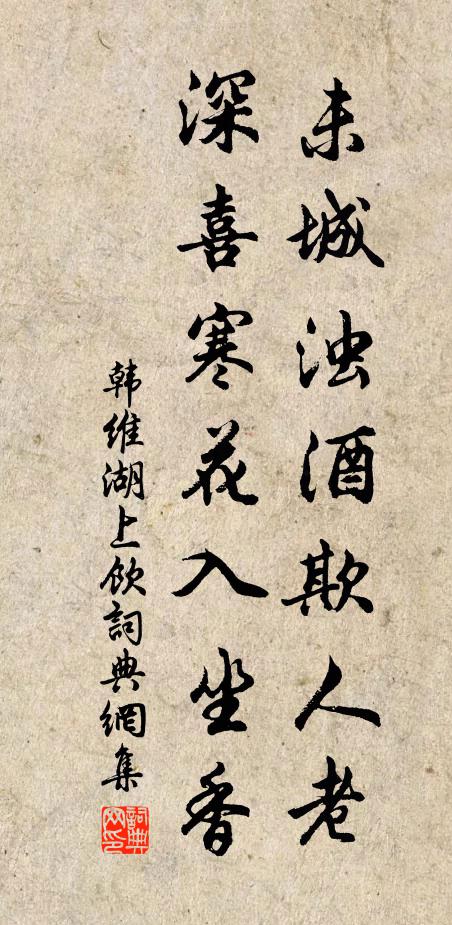 未城浊酒欺人老
深喜寒花入坐香
韩维湖上饮詞典網集
詞典
网印